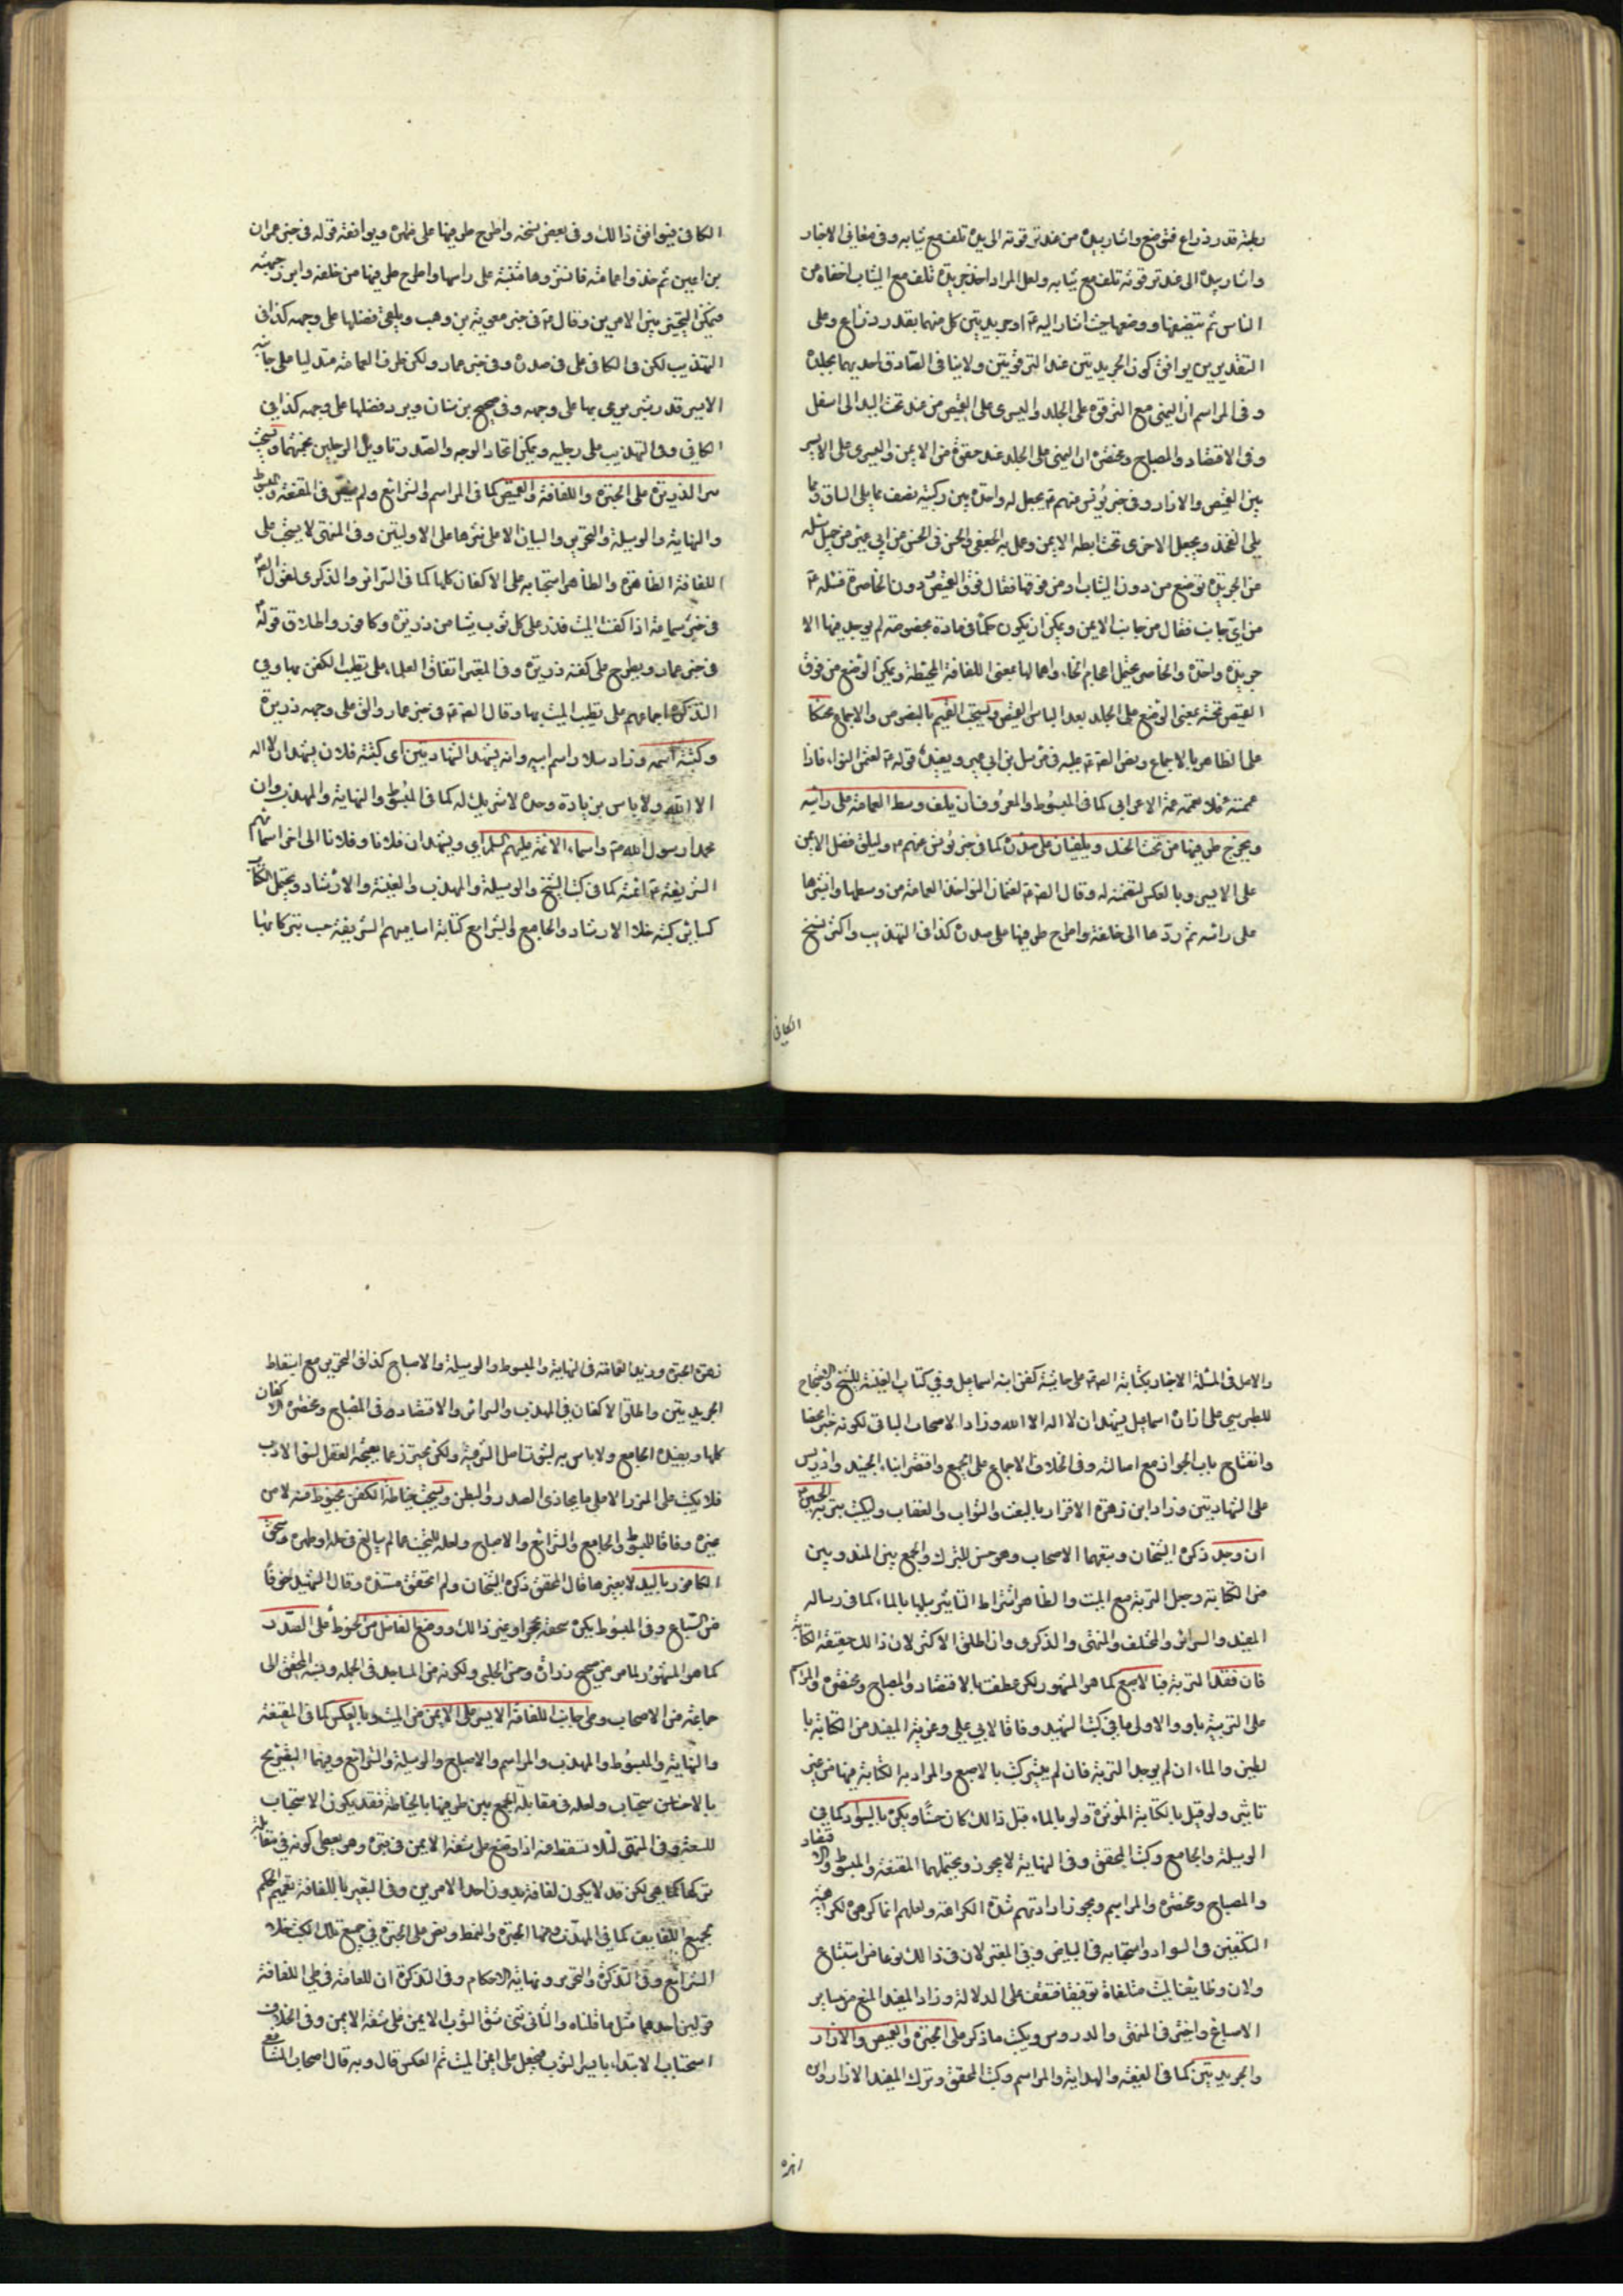 رطبة قدر ذراع فتوضع واشار بيده من عند ترقوته الى يده تلف مع ثيابه وفى معانى الاخبار
واشار بيده الى عند ترقوته تلف مع ثيابه ولعل المراد اخذ جريدة تلف مع الثياب اخفاء من
الناس ثم وضعها حيث اشار اليه او جريدتين كل منهما بقدر ذراع وعلى
التقديرين يوافق كون الجريدتين عند الترقوتين ولا ينافى الصادق احديهما بجلده
وفى المراسم ان اليمنى مع الترقوة على الجلد واليسرى على القميص من عند تحت اليد الى اسفل
وفى الاقتصاد والمصباح ومختصره ان اليمنى على الجلد عند حقوه من الايمن واليسرى على الايسر
بين القميص والازار وفى خبر يونس عنهم ع يجعل له واحدة بين ركبتيه نصف مما يلى الساق ونصف مما
يلى الفخذ ويجعل الاخرى تحت ابطه الايمن وعليه الجعفى وفى الحسن عن جميل سئله
عن الجريدة توضع من دون الثياب او من فوقها فقال فوق القميص دون الخاصرة فسئله
من اى جانب فقال من جانب الايمن ويمكن ان يكون حكما فى مادة مخصوصة لم يوجد فيها الا
جريدة واحدة والخاصرة يحتمل اعجام الخاء واهمالها بمعنى اللفافة المحيطة ويمكن الوضع من فوق
القميص تحته بمعنى الوضع على الجلد بعد الباس القميص ويستحب التعميم بالنصوص والاجماع محنكا
على الظاهر بالاجماع ونص الصادق ع عليه فى مرسل بن ابى عمير ويفيده قوله ع لعثمن النوا فاذا
عممته فلا تعممه عمة الاعرابى كما فى المبسوط والمعروف ان يلف وسط العمامة على راسه
ويخرج طرفيها من تحت الحنك ويلقيان على صدره كما فى خبر يونس عنهم ع وليلق فضل الايمن
على الايسر وبالعكس لتضمنه له وقال الصادق ع لعثمان النوا خذ العمامة من وسطها وانشرها
على راسه ثم ردها الى خلفه واطرح طرفيها على صدره كذا فى التهذيب واكثر نسخ
الكافى
الكافى فيوافق ذالك وفى بعض نسخه واطرح طرفيها على ظهره ويوافقه قوله فى خبر حمران
بن اعين ثم خذوا عمامته فانشروها مثنية على راسها واطرح طرفيها من خلفه وابرز جبهته
فيمكن التخيير بين الامرين وقال ع فى خبر معوية بن وهب ويلقى فضلها على وجهه كذا فى
التهذيب لكن فى الكافى على صدره وفى خبر عمار وليكن طرف العمامة متدليا على جانبه
الايسر قدر شبر يرمى بها على وجهه وفى صحيح بن سنان ويرد فضلها على وجهه كذا فى
الكافى وفى التهذيب على رجليه ويمكن اتحاد الوجه والصدر وتاويل الرجلين بجنبهما ويستحب
نثر الذريرة على الحبرة واللفافة والقميص كما فى المراسم والشرائع ولم ينص فى المقنعة والمبسوط
والنهاية والوسيلة والتحرير والبيان الا على نثرها على الاوليتين وفى المنتهى لا يستحب على
اللفافة الظاهرة والظاهر استحبابه على الاكفان كلها كما فى السرائر والذكرى لقول الص ع
فى خبر سماعة اذا كفنت الميت فذر على كل ثوب شيئا من ذريرة وكافور واطلاق قوله
فى خبر عمار ويطرح على كفنه ذريرة وفى المعتبر اتفاق العلماء على تطيب الكفن بها وفى
التذكرة اجماعهم على تطيب الميت بها وقال الص ع فى خبر عمار والق على وجهه ذريرة
وكتبة اسمه وزاد سلار اسم ابيه وانه يشهد الشهادتين اى كتبة فلان يشهد ان لا اله
الا الله ولا باس بزيادة وحده لا شريك له كما فى المبسوط والنهاية والمهذب وان
محمدا رسول الله ص واسماء الائمة عليهم السلم اى ويشهد ان فلانا وفلانا الى اخر اسمائهم
الشريفة ائمة كما فى كتب الشيخ والوسيلة والمهذب والغنية والارشاد ويحتمل الكتاب
كسائر كتبه خلا الارشاد والجامع والشرائع كتابة اساميهم الشريفة حسب تبركا بها
والاصل فى المسئلة الاخبار بكتابة الص ع على حاشية كفن ابنه اسماعيل وفى كتاب الغيبة للشيخ والاحتجاج
للطبرسى على ازاره اسماعيل يشهد ان لا اله الا الله وزاد الاصحاب الباقى لكونه خيرا محضا
وانفتاح باب الجواز مع اصالته وفى الخلاف الاجماع على الجميع واقتصر ابناء الجنيد وادريس
على الشهادتين وزاد ابن زهرة الاقرار بالبعث والثواب والعقاب وليكتب بتربة الحسين ع
ان وجد ذكره الشيخان وتبعهما الاصحاب وهو حسن للتبرك والجمع بين المندوبين
من الكتابة وجعل التربة مع الميت والظاهر اشتراط التاثير بلها بالماء كما فى رسالة
المفيد والسرائر والمختلف والمنتهى والذكرى وان اطلق الاكثر لان ذالك حقيقة الكتابة
فان فقد التربة فبالاصبع كما هو المشهور لكن عطف بالاقتصاد والمصباح ومختصره والمراسم
على التربة باو والاولى ما فى كتب الشهيد وفاقا لابى على وعزية المفيد من الكتابة با
لطين والماء ان لم يوجد التربة فان لم يتيسر كتب بالاصبع والمراد به الكتابة فيها من غير
تاثير ولو قيل بالكتابة المؤثرة ولو بالماء قبل ذالك كان حسنا ويكره بالسواد كما فى
الوسيلة والجامع وكتب المحقق وفى النهاية لا يجوز ويحتملهما المقنعة والمبسوط والاقتصاد
والمصباح ومختصره والمراسم ويجوز ارادتهم شدة الكراهة ولعلهم انما كرهوه لكراهية
التكفين فى السواد واستحبابه فى البياض وفى المعتبر لان فى ذالك نوعا من استبشاع
ولان وظايف الميت متلقاة توقيفا فتقف على الدلالة وزاد المفيد المنع من ساير
الاصباغ واختير فى المنتهى والدروس ويكتب ما ذكر على الحبرة والقميص والازار
والجريدتين كما فى الفقيه والهداية والمراسم وكتب المحقق وترك المفيد الازار وابن
زهرة
زهرة الحبرة وزيد العمامة فى النهاية والمبسوط والوسيلة والاصباح كذا فى التحرير مع اسقاط
الجريدتين واطلق الاكفان فى المهذب والسرائر والاقتصاد وفى المصباح ومختصره الاكفان
كلها ويفيده الجامع ولا باس به لثبوت اصل الشرعية ولكن يجتنب عما يقبحه العقل لسوء الادب
فلا يكتب على المئزر الا على ما يحاذى الصدر والبطن ويستحب خياطة الكفن بخيوط منه لا من
غيره وفاقا للمبسوط والجامع والشرائع والاصباح ولعله للتجنب عما لم يبالغ فى حله او طهره وسحق
الكافور باليد لا بغيرها قال المحقق ذكره الشيخان ولم اتحقق مستنده وقال الشهيد خوفا
من الضياع وفى المبسوط يكره سحقه بحجر او غير ذالك ووضع الفاضل من الحنوط على الصدر
كما هو المشهور لما مر من صحيح زرارة وحسن الحلبى ولكونه من المساجد فى الجملة ونسبه المحقق الى
جماعة من الاصحاب وطى جانب اللفافة الايسر على الايمن من الميت وبالعكس كما فى المقنعة
والنهاية والمبسوط والمهذب والمراسم والاصباح والوسيلة والشرائع وفيهما التصريح
بالاستحباب ولعله فى مقابلة الجمع بين طرفيها بالخياطة فقد يكون الاستحباب
للسعة وفى المنتهى لئلا تسقط منه اذا وضع على شقه الايمن فى قبره وهو يعطى كونه فى مقابلة
تركها كما هى لكن قد لا يكون لفافة بدون احد الامرين وفى التعبير باللفافة تعميم الحكم
لجميع اللفايف كما فى المهذب وهما الحبرة والنمط ونص على الحبرة فى جميع تلك الكتب خلا
الشرائع وفى التذكرة والتحرير ونهاية الاحكام وفى التذكرة ان للعامة فى طى اللفافة
قولين احدهما مثل ما قلناه والثانى ثنى شق الثوب الايمن على شقه الايمن وفى الخلاف
استحباب الابتداء بايسر الثوب فيجعل على ايمن الميت ثم العكس قال وبه قال اصحاب الشافعى